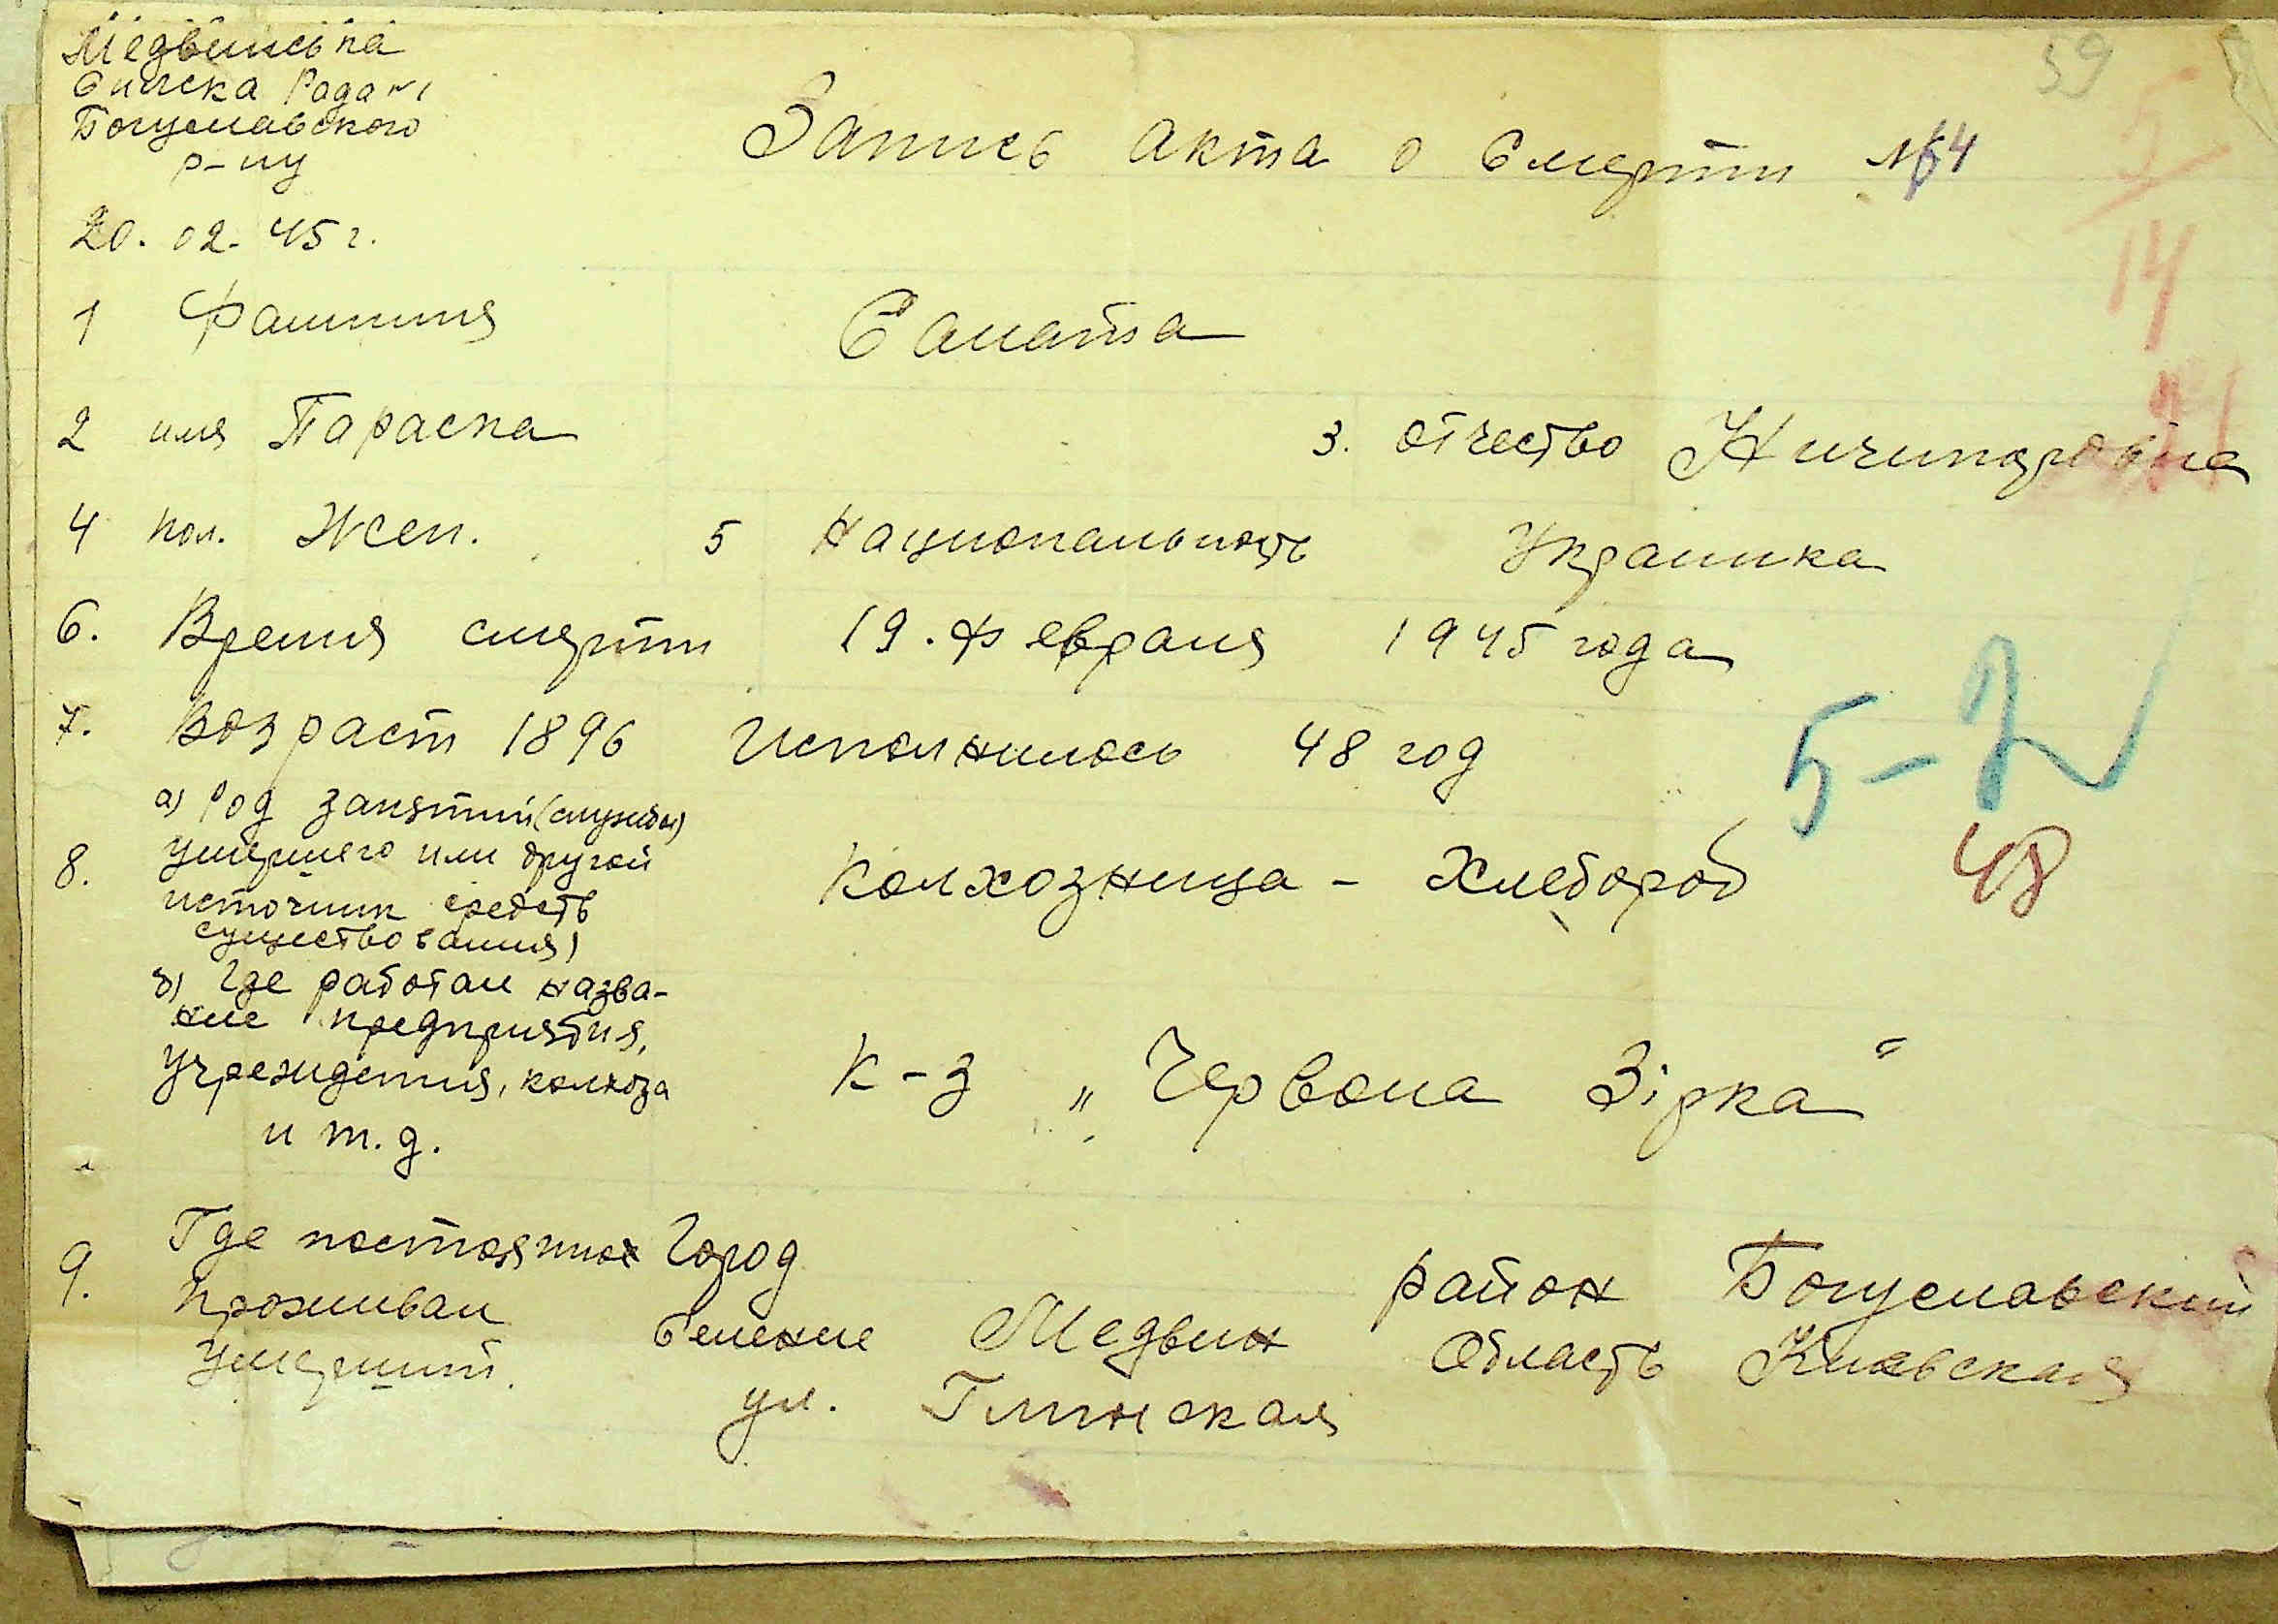 Медвинська
Сільска Рада №1
Богуславского
р-ну
20. 02. 45 г.
59
Запись акта о Смерти №64
5
14
1 Фамилия Саната
2 имя Параска 3. отчество Ничипоровна
4 пол. Жен. 5 Национальность Украинка
6. Время смерти 19. февраля 1945 года
7. Возраст 1896 Исполнилось 48 год
5-2
48
а) Род занятий (службы)
8. умершего или другой Колхозница - Хлебороб
источник средств
существования)
б) Где работал назва-
ние предприятия,
учреждения, колхоза К-з „Червона Зірка"
и т. д.
9. Где постоянно Город район Богуславский
проживал Селение Медвин Область Киевская
умерший. ул. Глинская